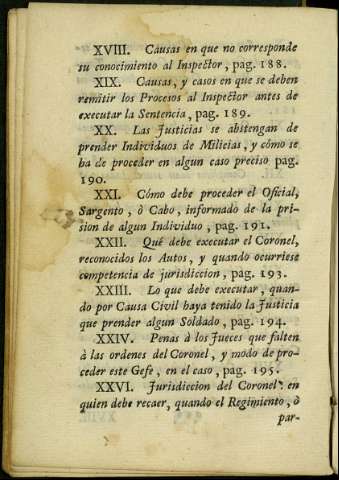 XVIII. Causas en que no corresponde
su conocimiento al Inspector, pag. 188.
XIX. Causas, y casos en que se deben
remitir los Procesos al Inspector antes de
executar la Sentencia, pag. 189.
XX. Las Justicias se abstengan de
prender Individuos de Milicias, y cómo se
ha de proceder en algun caso preciso pag.
190.
XXI. Cómo debe proceder el Oficial,
Sargento, ò Cabo, informado de la pri-
sion de algun Individuo, pag. 191.
XXII. Qué debe executar el Coronel,
reconocidos los Autos, y quando ocurriese
competencia de jurisdiccion, pag. 193.
XXIII. Lo que debe executar, quan-
do por Causa Civil haya tenido la Justicia
que prender algun Soldado, pag. 194.
XXIV. Penas à los Jueces que falten
à las ordenes del Coronel, y modo de pro-
ceder este Gefe, en el caso, pag. 195.
XXVI. Jurisdiccion del Coronel: en
quien debe recaer, quando el Regimiento, ò
par-